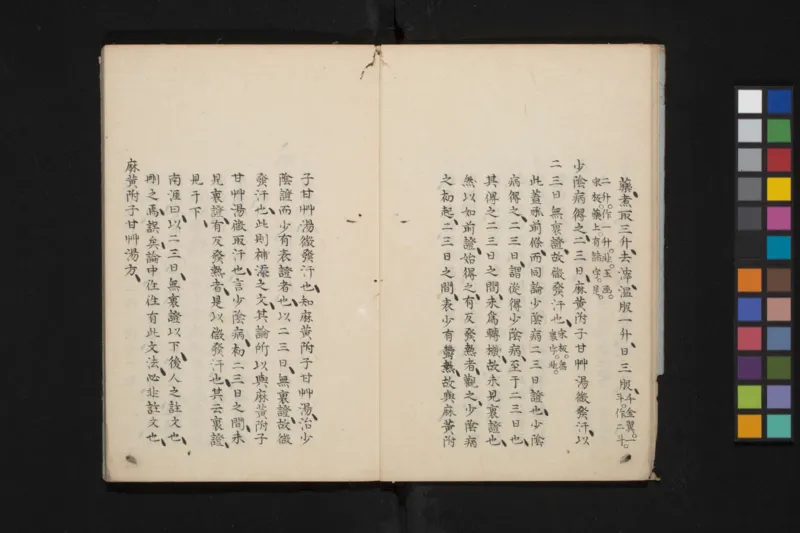 藥煮取三升去滓溫服一升日三服千金翼。一斗。作二斗。
二升。作一升。非。玉函。宋板。藥上。有諸字。是。
少陰病得之二三日麻黃附子甘艸湯微發汗以
二三日無裏證故微發汗也宋板。無裏字。非。
此蓋承前條而因論少陰病二三日證也少陰
病得之二三日謂從得少陰病至于二三日也
其得之二三日之間未為轉機故未見裏證也
然以如前證始得之有反發熱者觀之少陰病
之初起二三日之間表少有鬱熱故與麻黃附
子甘艸湯微發汗也知麻黃附子甘艸湯治少
陰證而少有表證者也以二三日無裏證故微
發汗也此則補湊之文其論所以與麻黃附子
甘艸湯微取汗也言少陰病初二三日之間未
見裏證有反發熱者是以微發汗也其云裏證
見于下
南涯曰以二三日無裏證以下後人之註文也
剛之為誤矣論中往往有此文法必非註文也
麻黃附子甘艸湯方